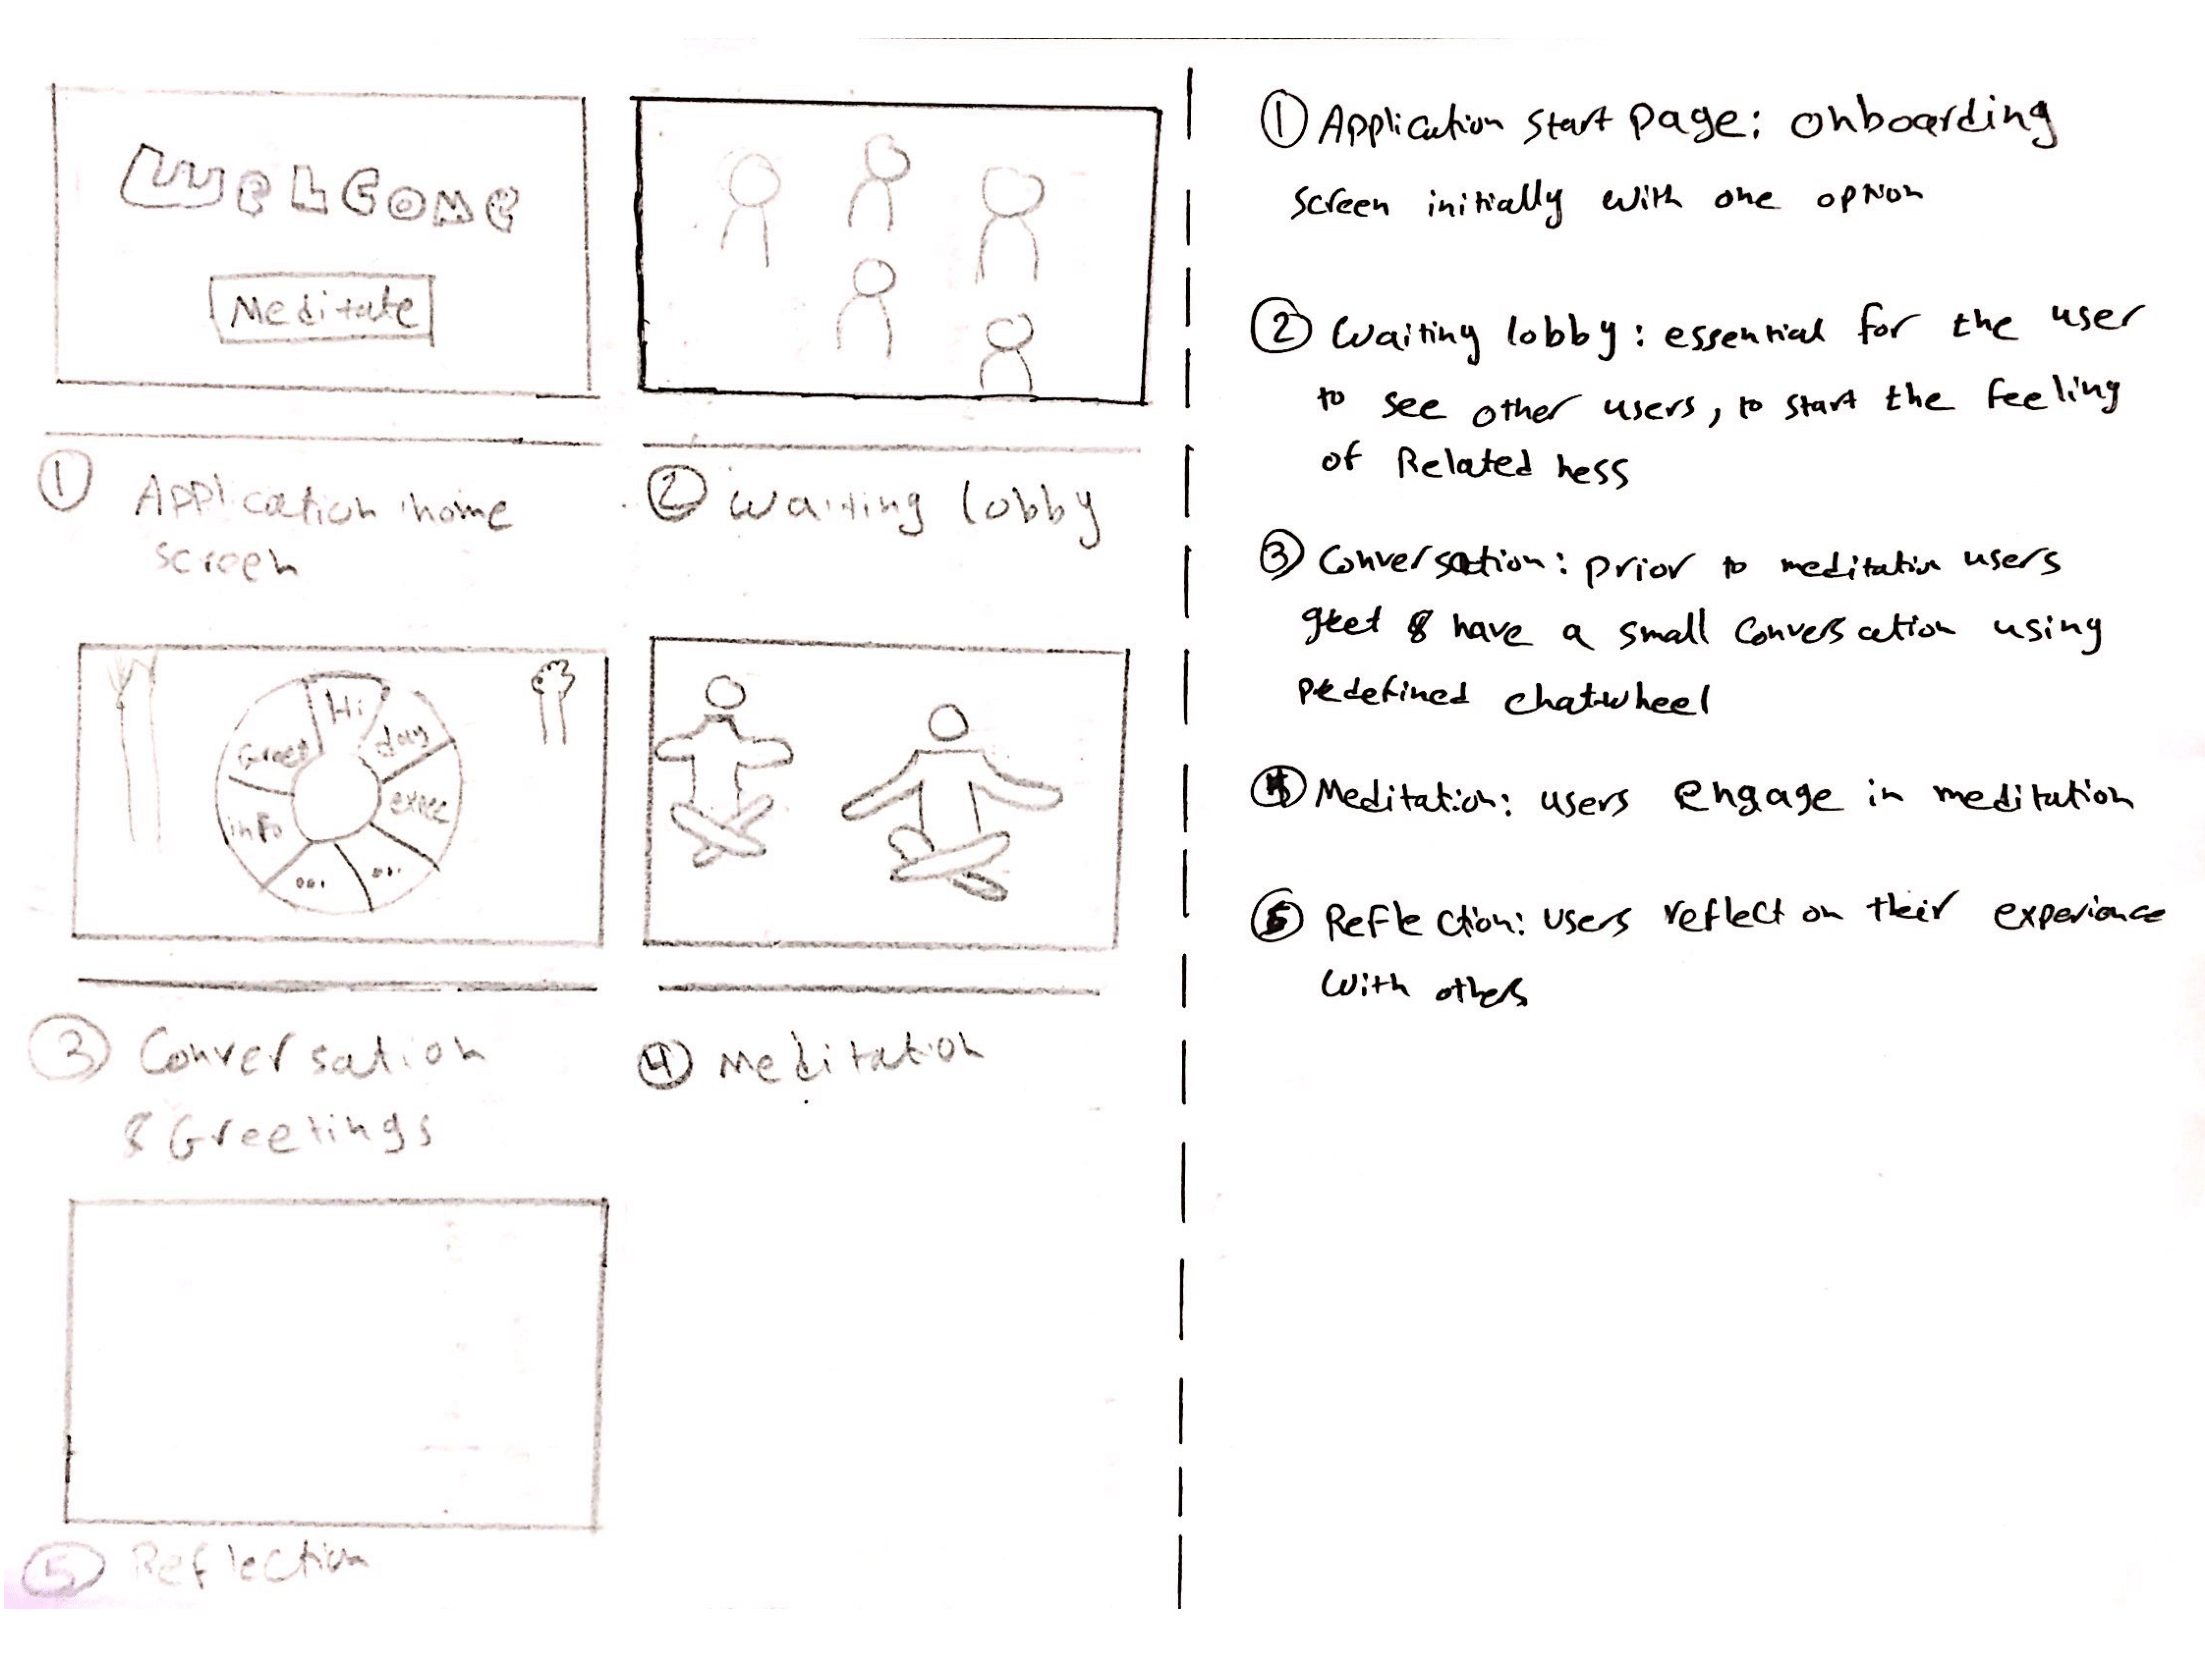 WELCOME
Meditate
① Application home
screen
② waiting lobby
Hi
Greet
day
info
expec
...
...
③ Conversation
& Greetings
④ meditation
⑤ Reflection
① Application start page: onboarding
screen initially with one option
② waiting lobby: essential for the user
to see other users, to start the feeling
of Relatedness
③ Conversation: prior to meditation users
greet & have a small conversation using
predefined chatwheel
④ Meditation: users engage in meditation
⑤ Reflection: users reflect on their experience
with others